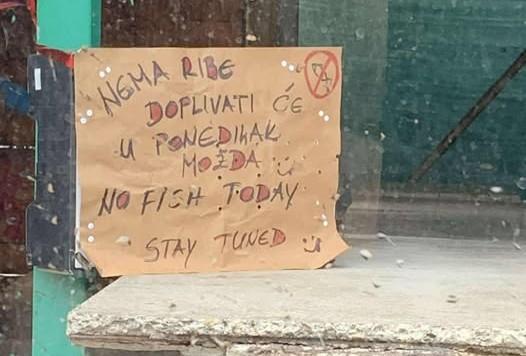 NEMA RIBE
DOPLIVATI ĆE
U PONEDIKAK
MOŽDA
NO FISH TODAY
STAY TUNED